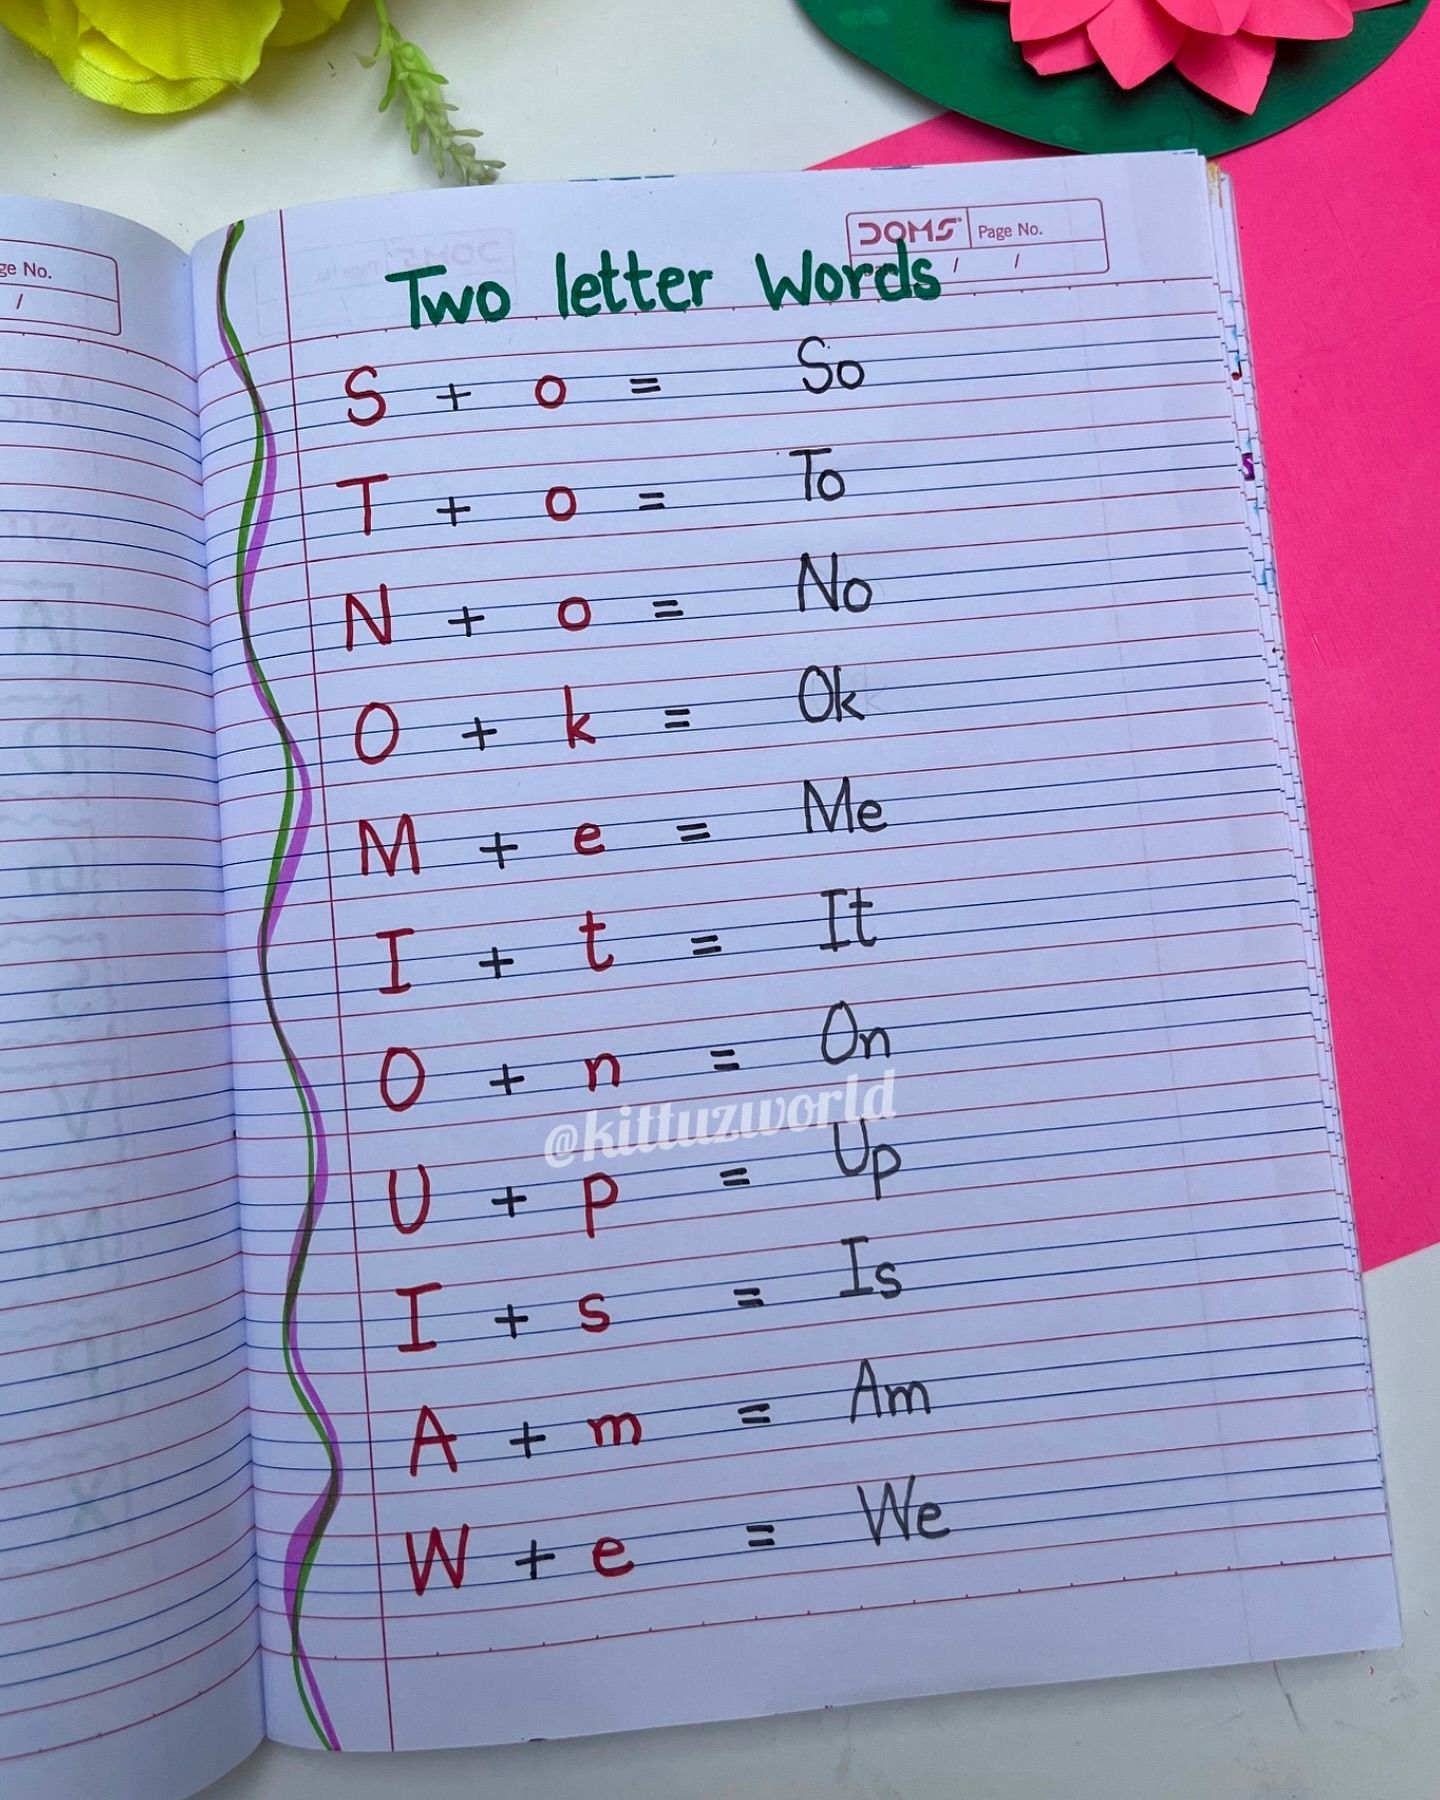 DOMS Page No.
ge No.
/
/ /
Two letter Words
S + o = So
T + o = To
N + o = No
O + k = Ok
M + e = Me
I + t = It
O + n = On
@kittuzworld
U + p = Up
I + s = Is
A + m = Am
W + e = We